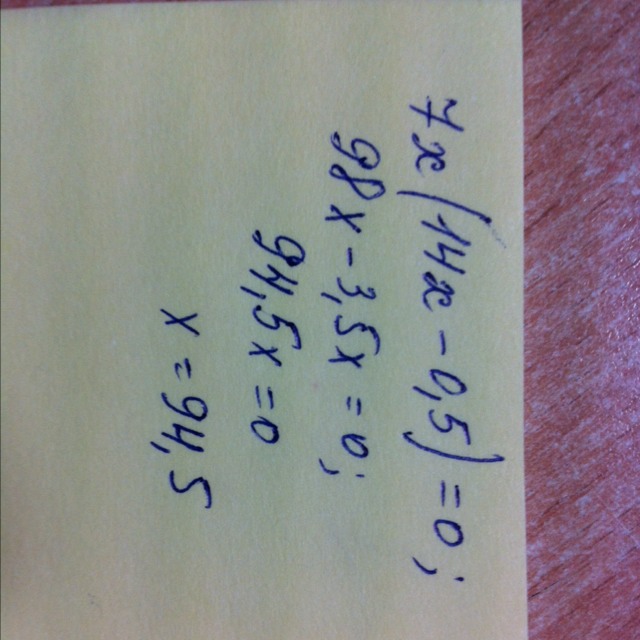 7x(14x-0,5)=0;
98x-3,5x=0;
94,5x=0
x=94,5